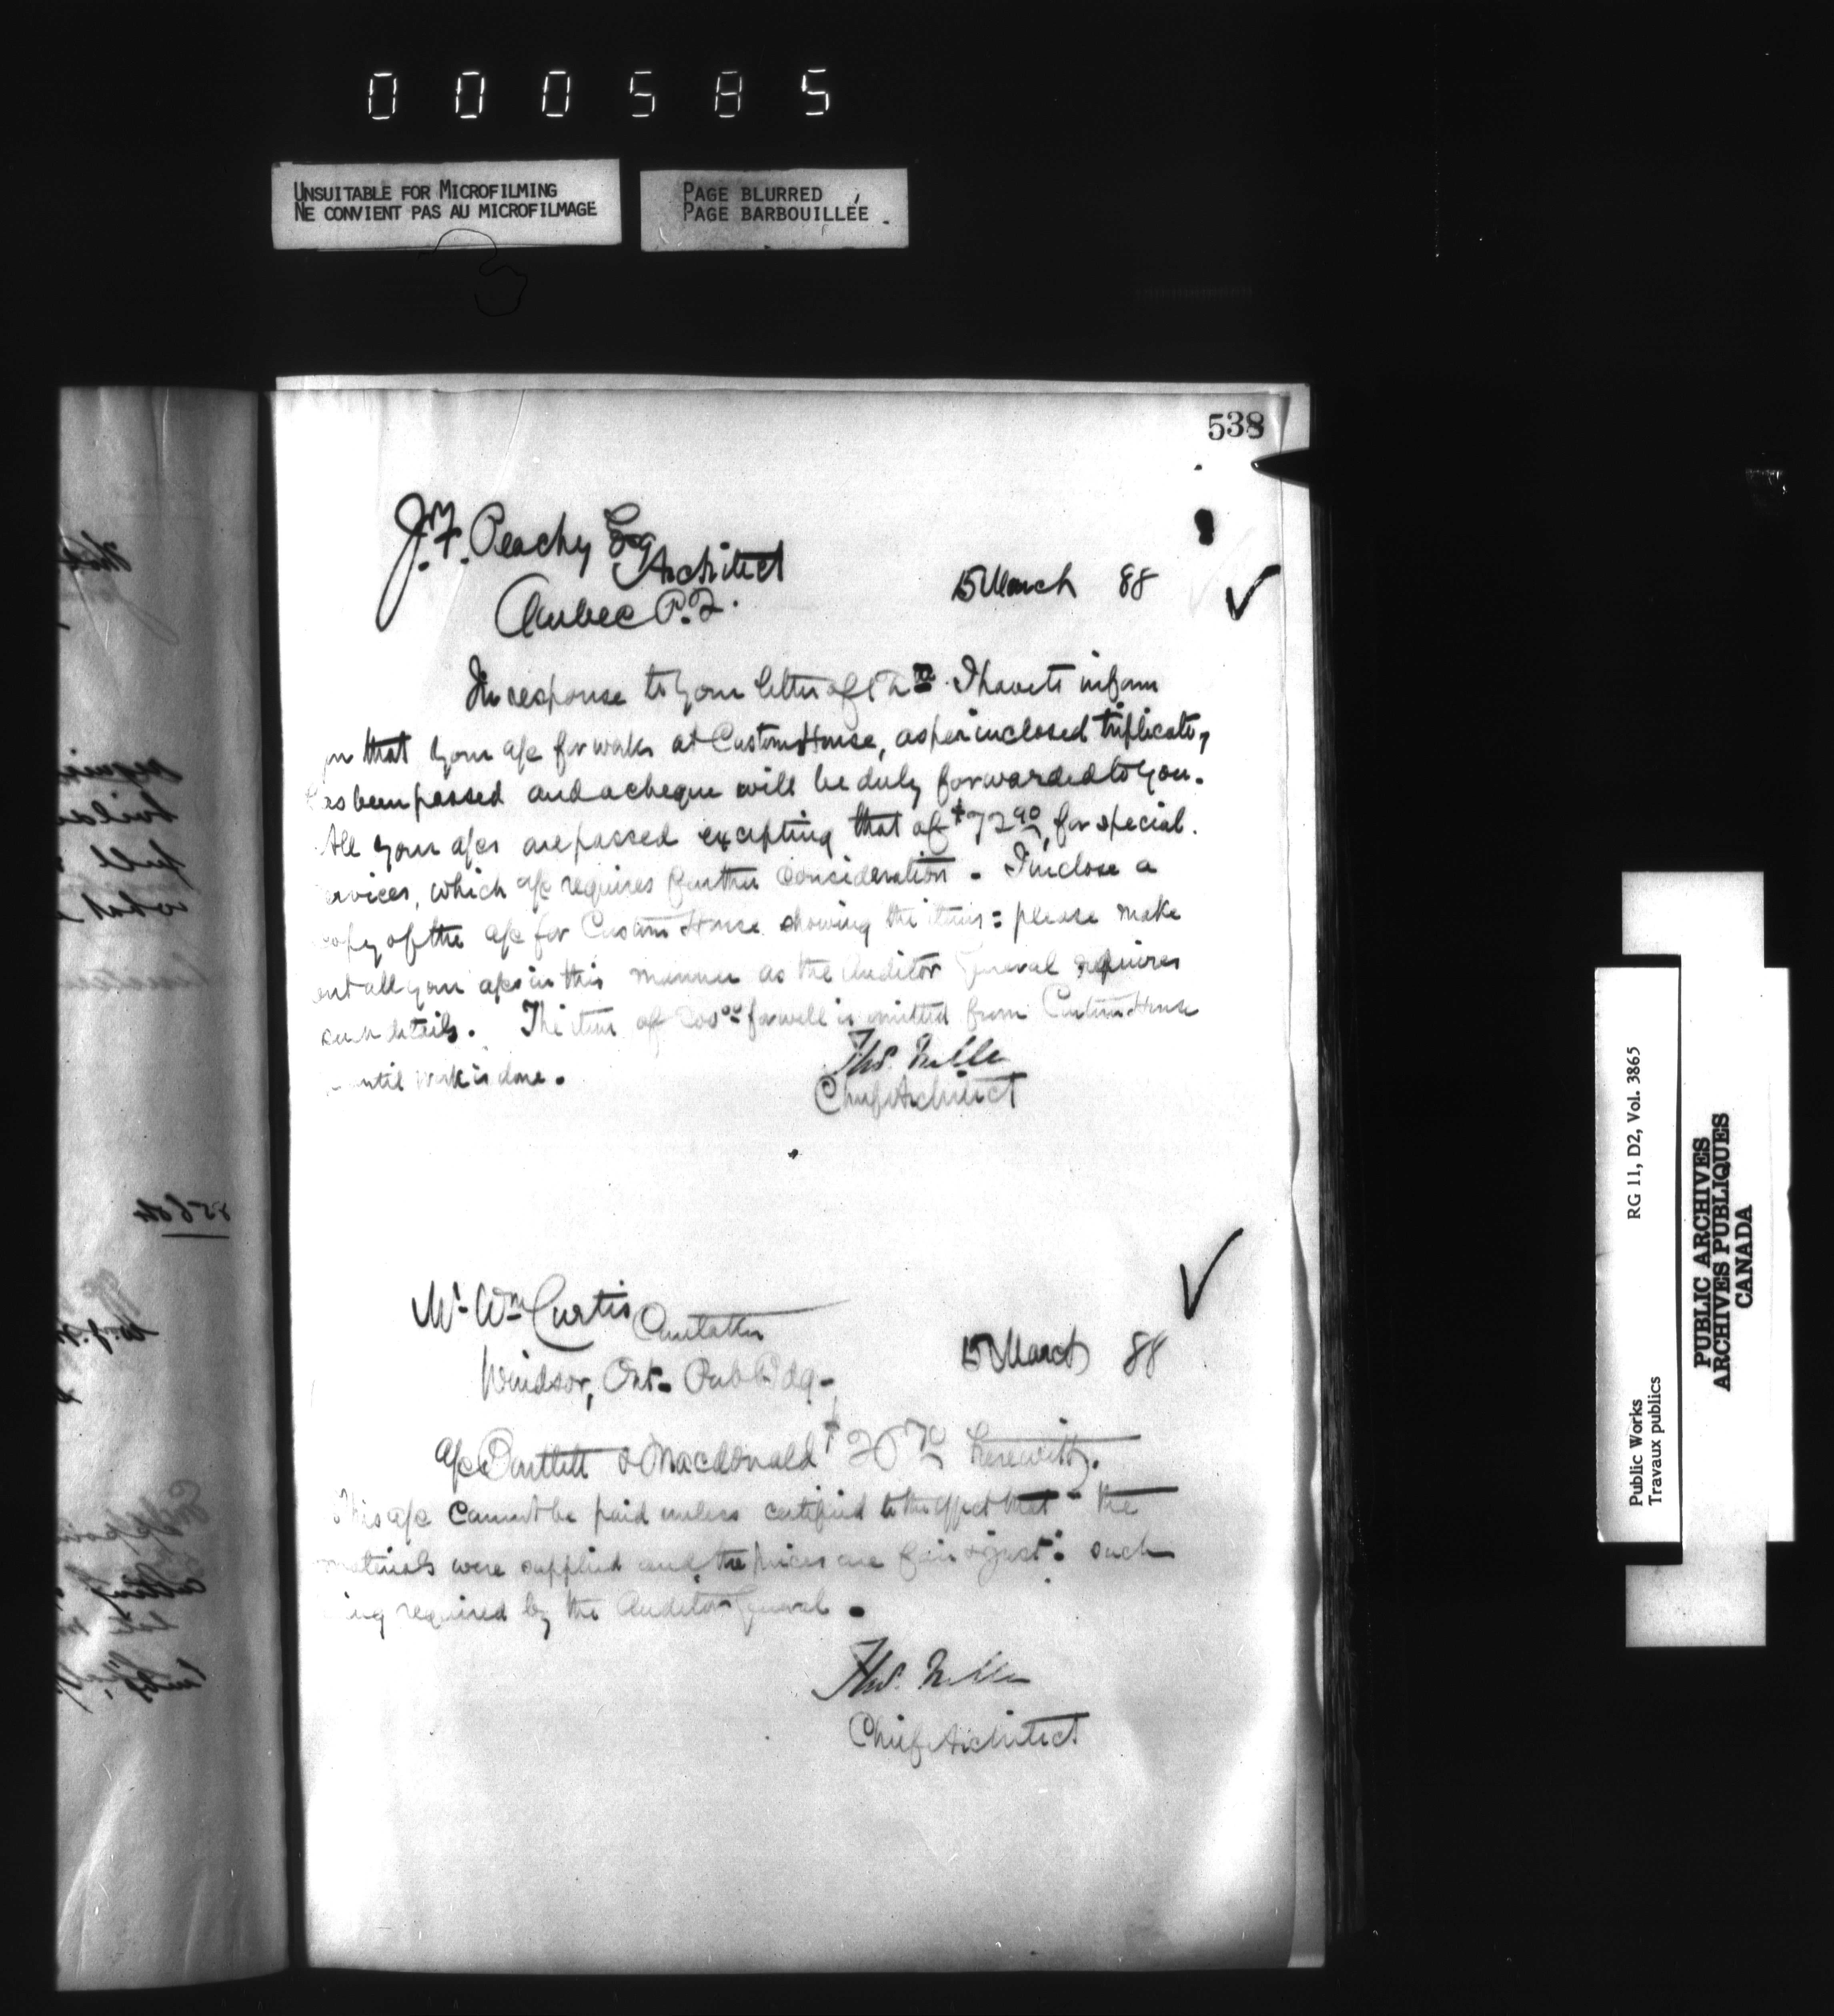 000585
UNSUITABLE FOR MICROFILMING
NE CONVIENT PAS AU MICROFILMAGE
PAGE BLURRED
PAGE BARBOUILLÉE
538
J. F. Peachy Esq
Architect
Quebec P.Q.
15 March 88
In response to your letter of I have to inform
that your a/c for works at Custom House, as per inclosed triplicate,
has been passed and a cheque will be duly forwarded to you.
All your a/cs are passed excepting that of $72 90, for special
services, which a/c requires further consideration. I inclose a
copy of the a/c for Custom House showing the items: please make
out all your a/cs in this manner as the Auditor General requires
such details. The item of for well is omitted from Custom House
until work is done.
Thos. Fuller
Chief Architect
Mr. Wm Curtis Caretaker
Windsor, Ont. Pub Bdg.
15 March 88
a/c Bartlett & Macdonald $ 70 herewith.
This a/c cannot be paid unless certified to the effect that "the
materials were supplied and the prices are fair & just": such
being required by the Auditor General.
Thos. Fuller
Chief Architect
Public Works
Travaux publics
RG 11, D2, Vol. 3865
PUBLIC ARCHIVES
ARCHIVES PUBLIQUES
CANADA